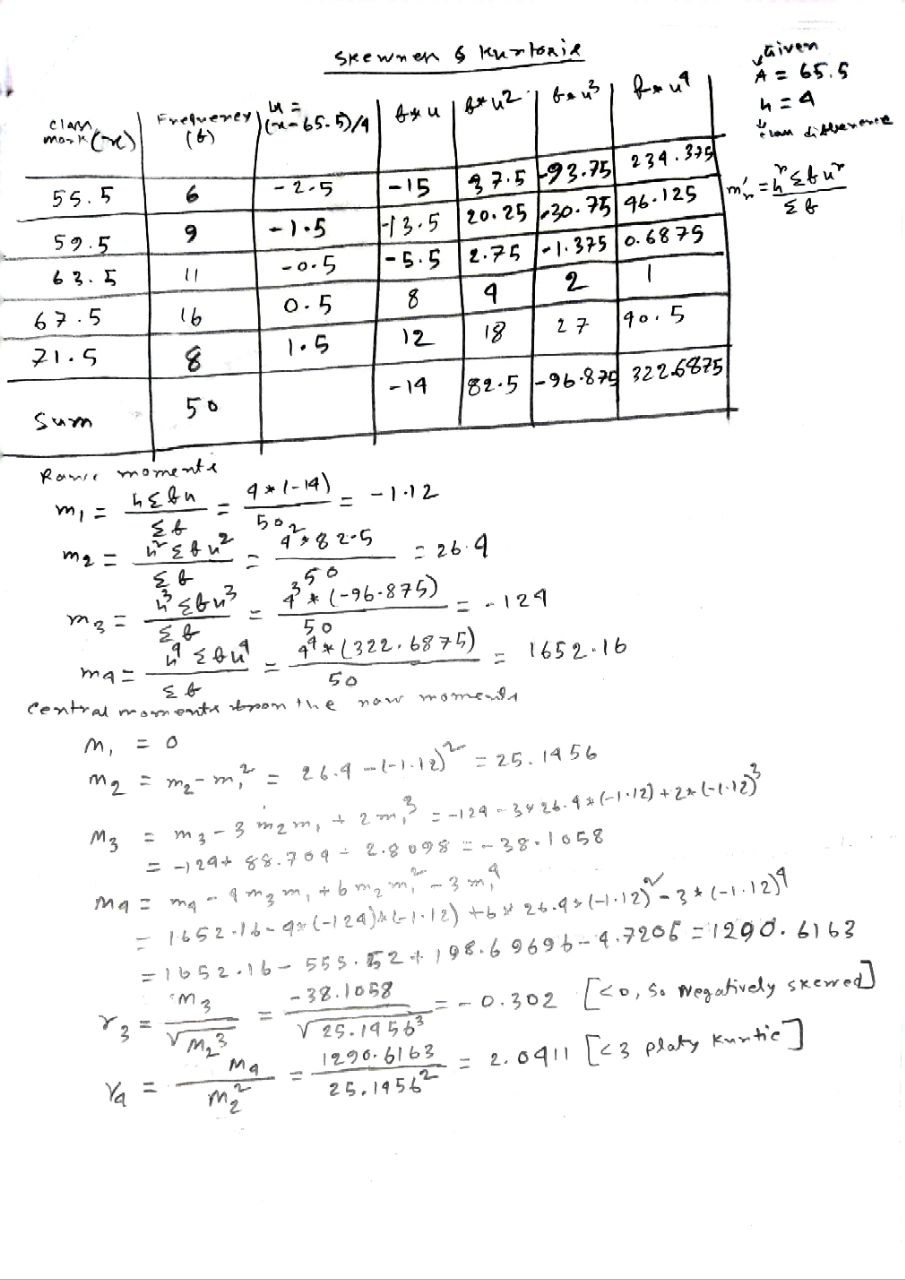 Skewness & Kurtosis
Given
A = 65.5
h = 4
class difference
m'r = h^r Σfu^r / Σf
class mark (x) | Frequency (f) | u = (x-65.5)/4 | f*u | f*u² | f*u³ | f*u⁴
55.5 | 6 | -2.5 | -15 | 37.5 | -93.75 | 234.375
59.5 | 9 | -1.5 | -13.5 | 20.25 | -30.75 | 46.125
63.5 | 11 | -0.5 | -5.5 | 2.75 | -1.375 | 0.6875
67.5 | 16 | 0.5 | 8 | 4 | 2 | 1
71.5 | 8 | 1.5 | 12 | 18 | 27 | 40.5
Sum | 50 | -14 | 82.5 | -96.875 | 322.6875
moments
m1 = hΣfu / Σf = 4*(-14) / 50 = -1.12
m2 = h²Σfu² / Σf = 4²*82.5 / 50 = 26.4
m3 = h³Σfu³ / Σf = 4³*(-96.875) / 50 = -124
m4 = h⁴Σfu⁴ / Σf = 4⁴*(322.6875) / 50 = 1652.16
Central moments from the raw moments
M1 = 0
M2 = m2 - m1² = 26.4 - (-1.12)² = 25.1456
M3 = m3 - 3 m2 m1 + 2 m1³ = -124 - 3*26.4*(-1.12) + 2*(-1.12)³
= -124 + 88.704 - 2.8098 = -38.1058
M4 = m4 - 4 m3 m1 + 6 m2 m1² - 3 m1⁴
= 1652.16 - 4*(-124)*(-1.12) + 6*26.4*(-1.12)² - 3*(-1.12)⁴
= 1652.16 - 555.52 + 198.69696 - 4.7206 = 1290.6163
r3 = M3 / √M2³ = -38.1058 / √25.1456³ = -0.302 [<0, So Negatively skewed]
r4 = M4 / M2² = 1290.6163 / 25.1456² = 2.0411 [<3 platy kurtic]